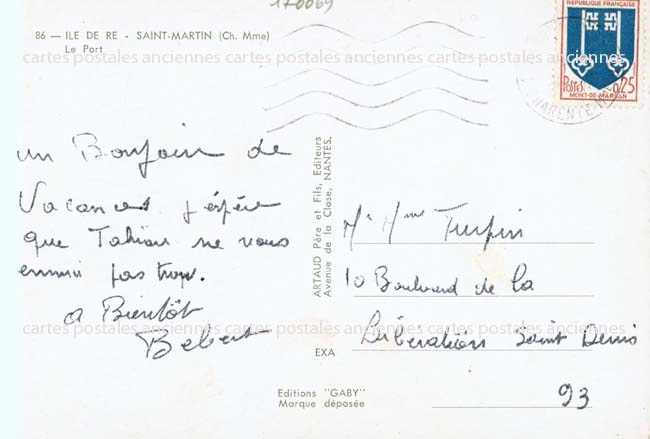 170069
86 — ILE DE RE - SAINT-MARTIN (Ch. Mme)
Le Port
REPUBLIQUE FRANÇAISE
Postes 0,25
MONT-DE-MARSAN
CHARENTE
cartes postales anciennes cartes postales anciennes cartes postales anciennes
un Bonjour de
Vacances j'espère
que ne vous
ennui pas trop.
a Bientôt
Bebert
ARTAUD Père et Fils, Editeurs
Avenue de la Close, NANTES.
Mr Mme Turpin
10 Boulevard de la
Libération Saint Denis
93
cartes postales anciennes cartes postales anciennes cartes postales anciennes
EXA
Editions "GABY"
Marque déposée